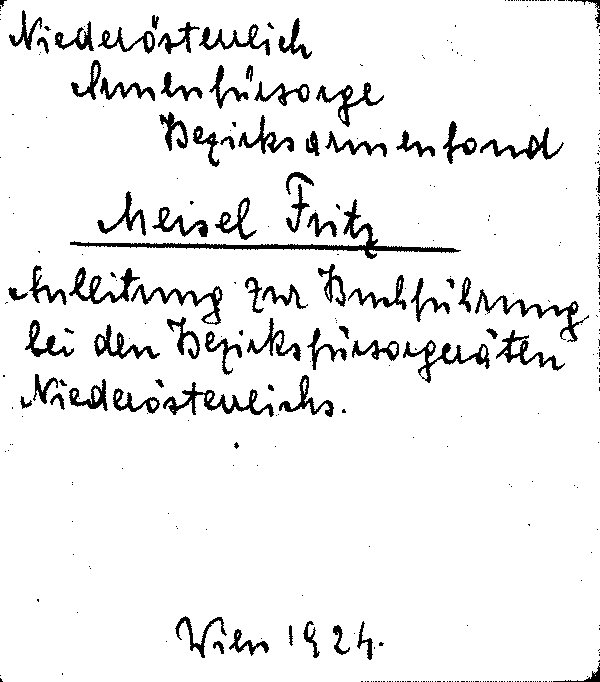 Niederösterreich
Armenfürsorge
Bezirksarmenfond
Meisel Fritz
Anleitung zur Buchführung
bei den Bezirksfürsorgeräten
Niederösterreichs.
Wien 1924.